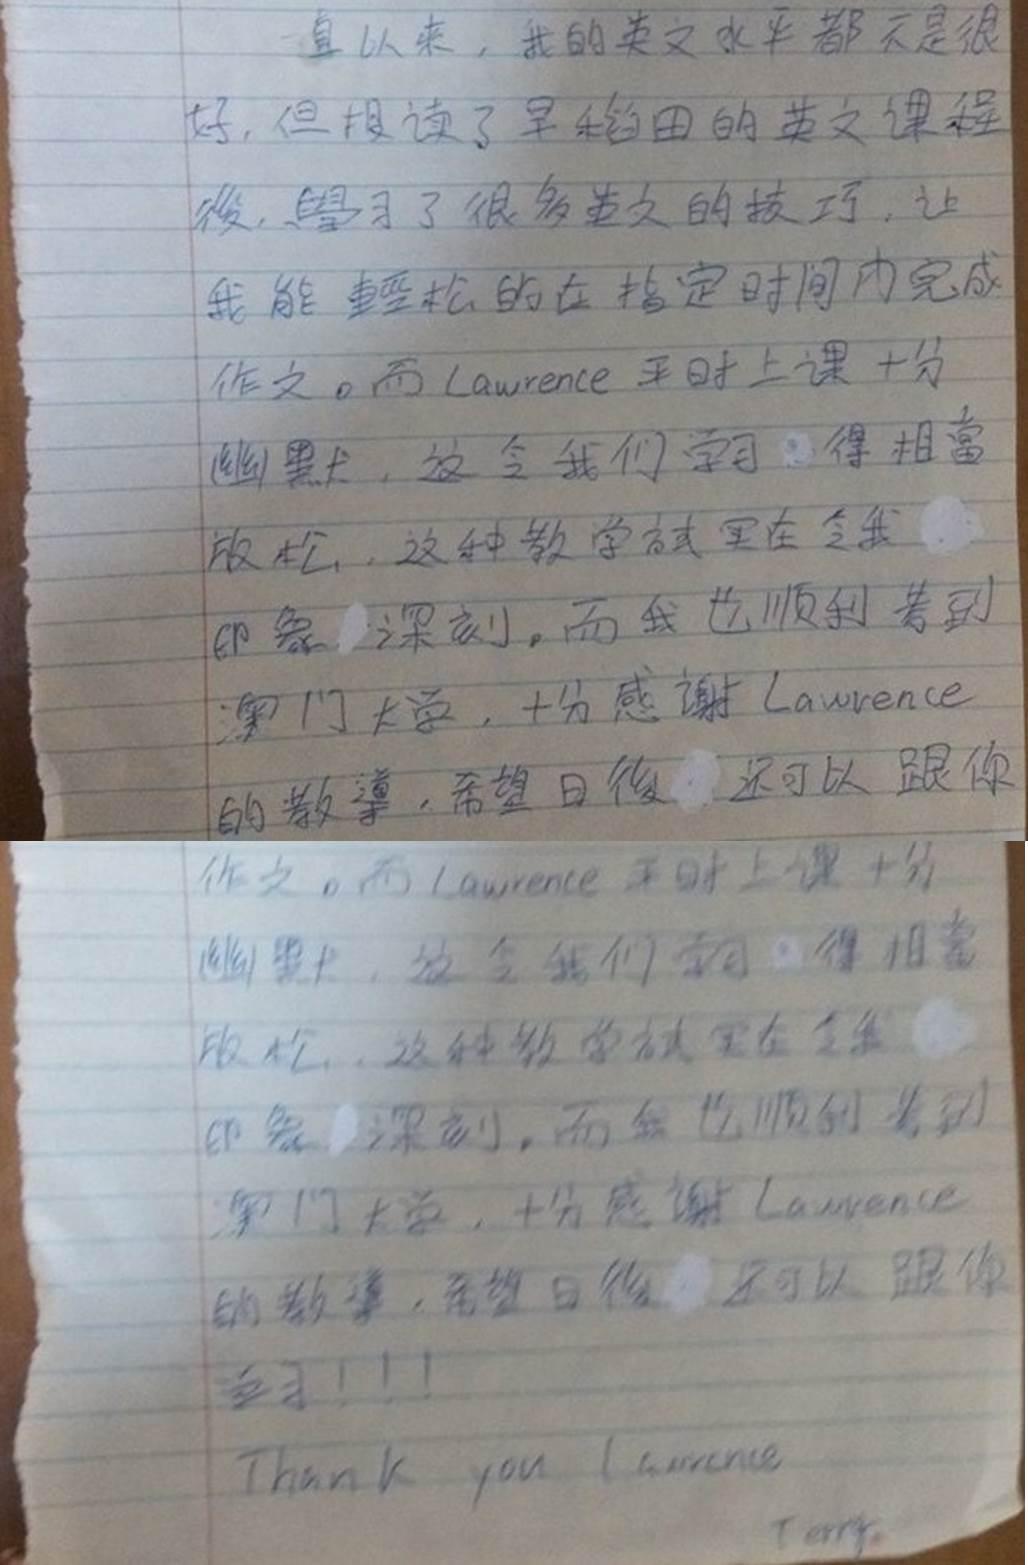 一直以来，我的英文水平都不是很
好，但报读了早稻田的英文课程
後，學习了很多英文的技巧，让
我能輕松的在指定时间内完成
作文。而Lawrence平时上课十分
幽默，这令我们学习得相當
放松，这种教学方式实在令我
印象深刻。而我也顺利考到
澳门大学，十分感謝Lawrence
的教導，希望日後还可以跟你
作文。而Lawrence平时上课十分
幽默，这令我们学习得相當
放松，这种教学方式实在令我
印象深刻。而我也顺利考到
澳门大学，十分感謝Lawrence
的教導，希望日後还可以跟你
学习！！！
Thank you Lawrence
Terry.